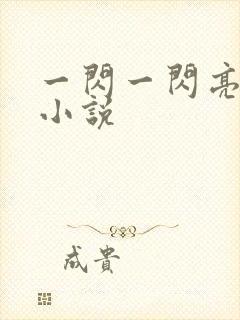 一閃一閃亮
小說
成貴